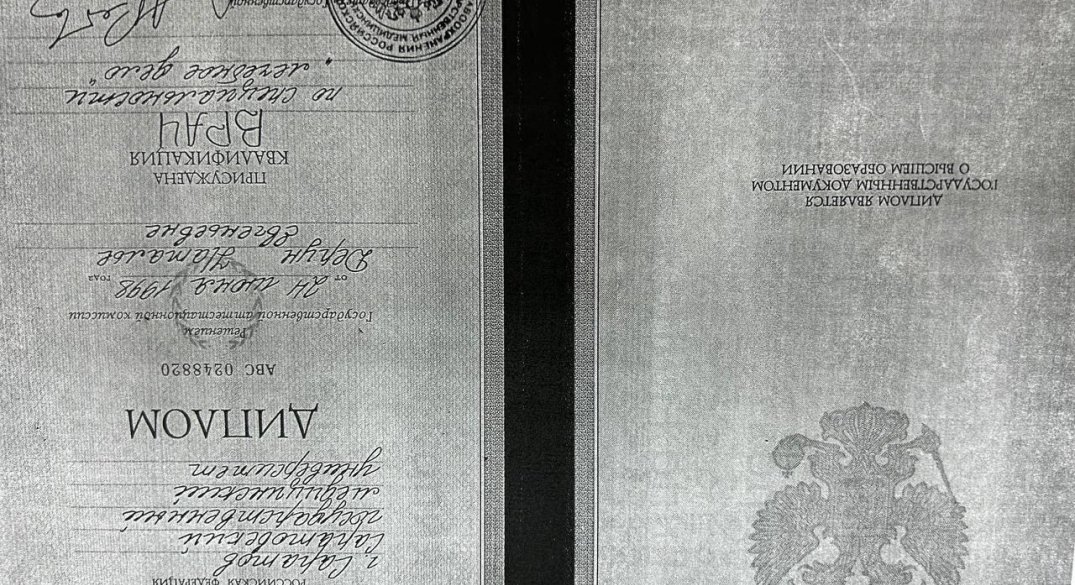 ДИПЛОМ ЯВЛЯЕТСЯ
ГОСУДАРСТВЕННЫМ ДОКУМЕНТОМ
О ВЫСШЕМ ОБРАЗОВАНИИ
РОССИЙСКАЯ ФЕДЕРАЦИЯ
г. Саратов
Саратовский
государственный
медицинский
университет
ДИПЛОМ
АВС 0248820
Решением
Государственной аттестационной комиссии
от 24 июня 1998 года
Дерун Наталье
Евгеньевне
ПРИСУЖДЕНА
КВАЛИФИКАЦИЯ
ВРАЧ
по специальности
"лечебное дело"